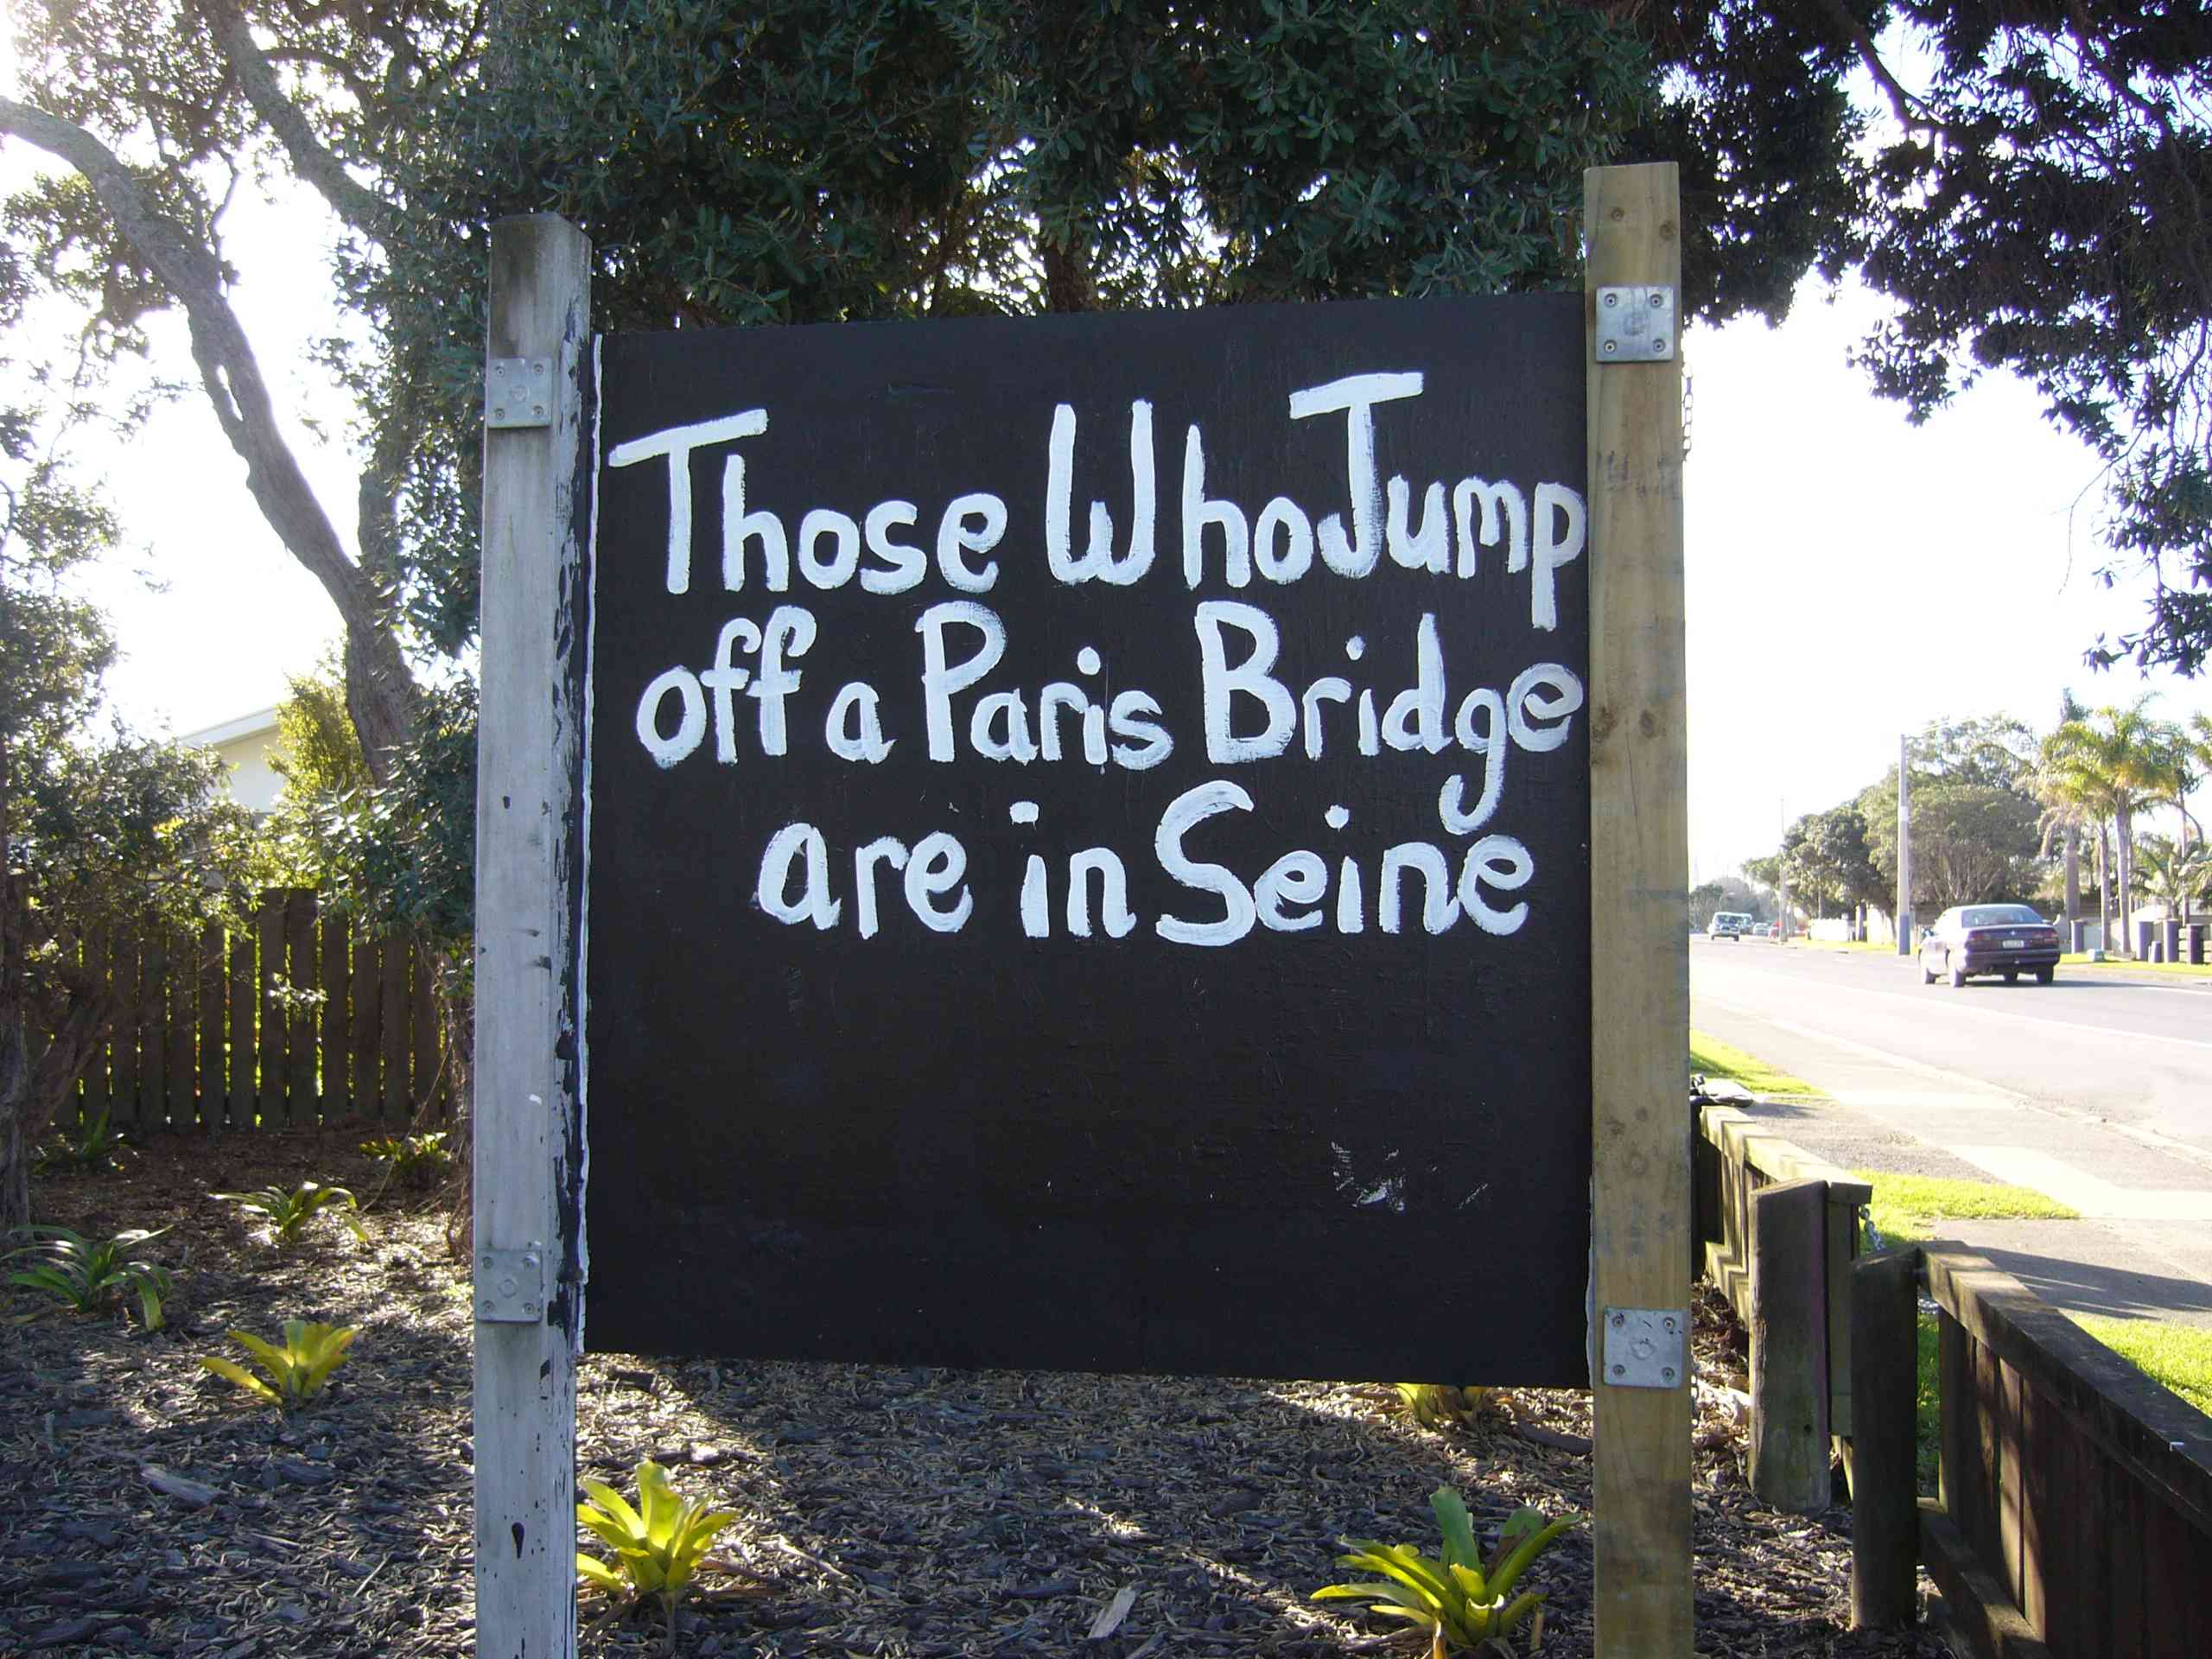 Those Who Jump
off a Paris Bridge
are in Seine